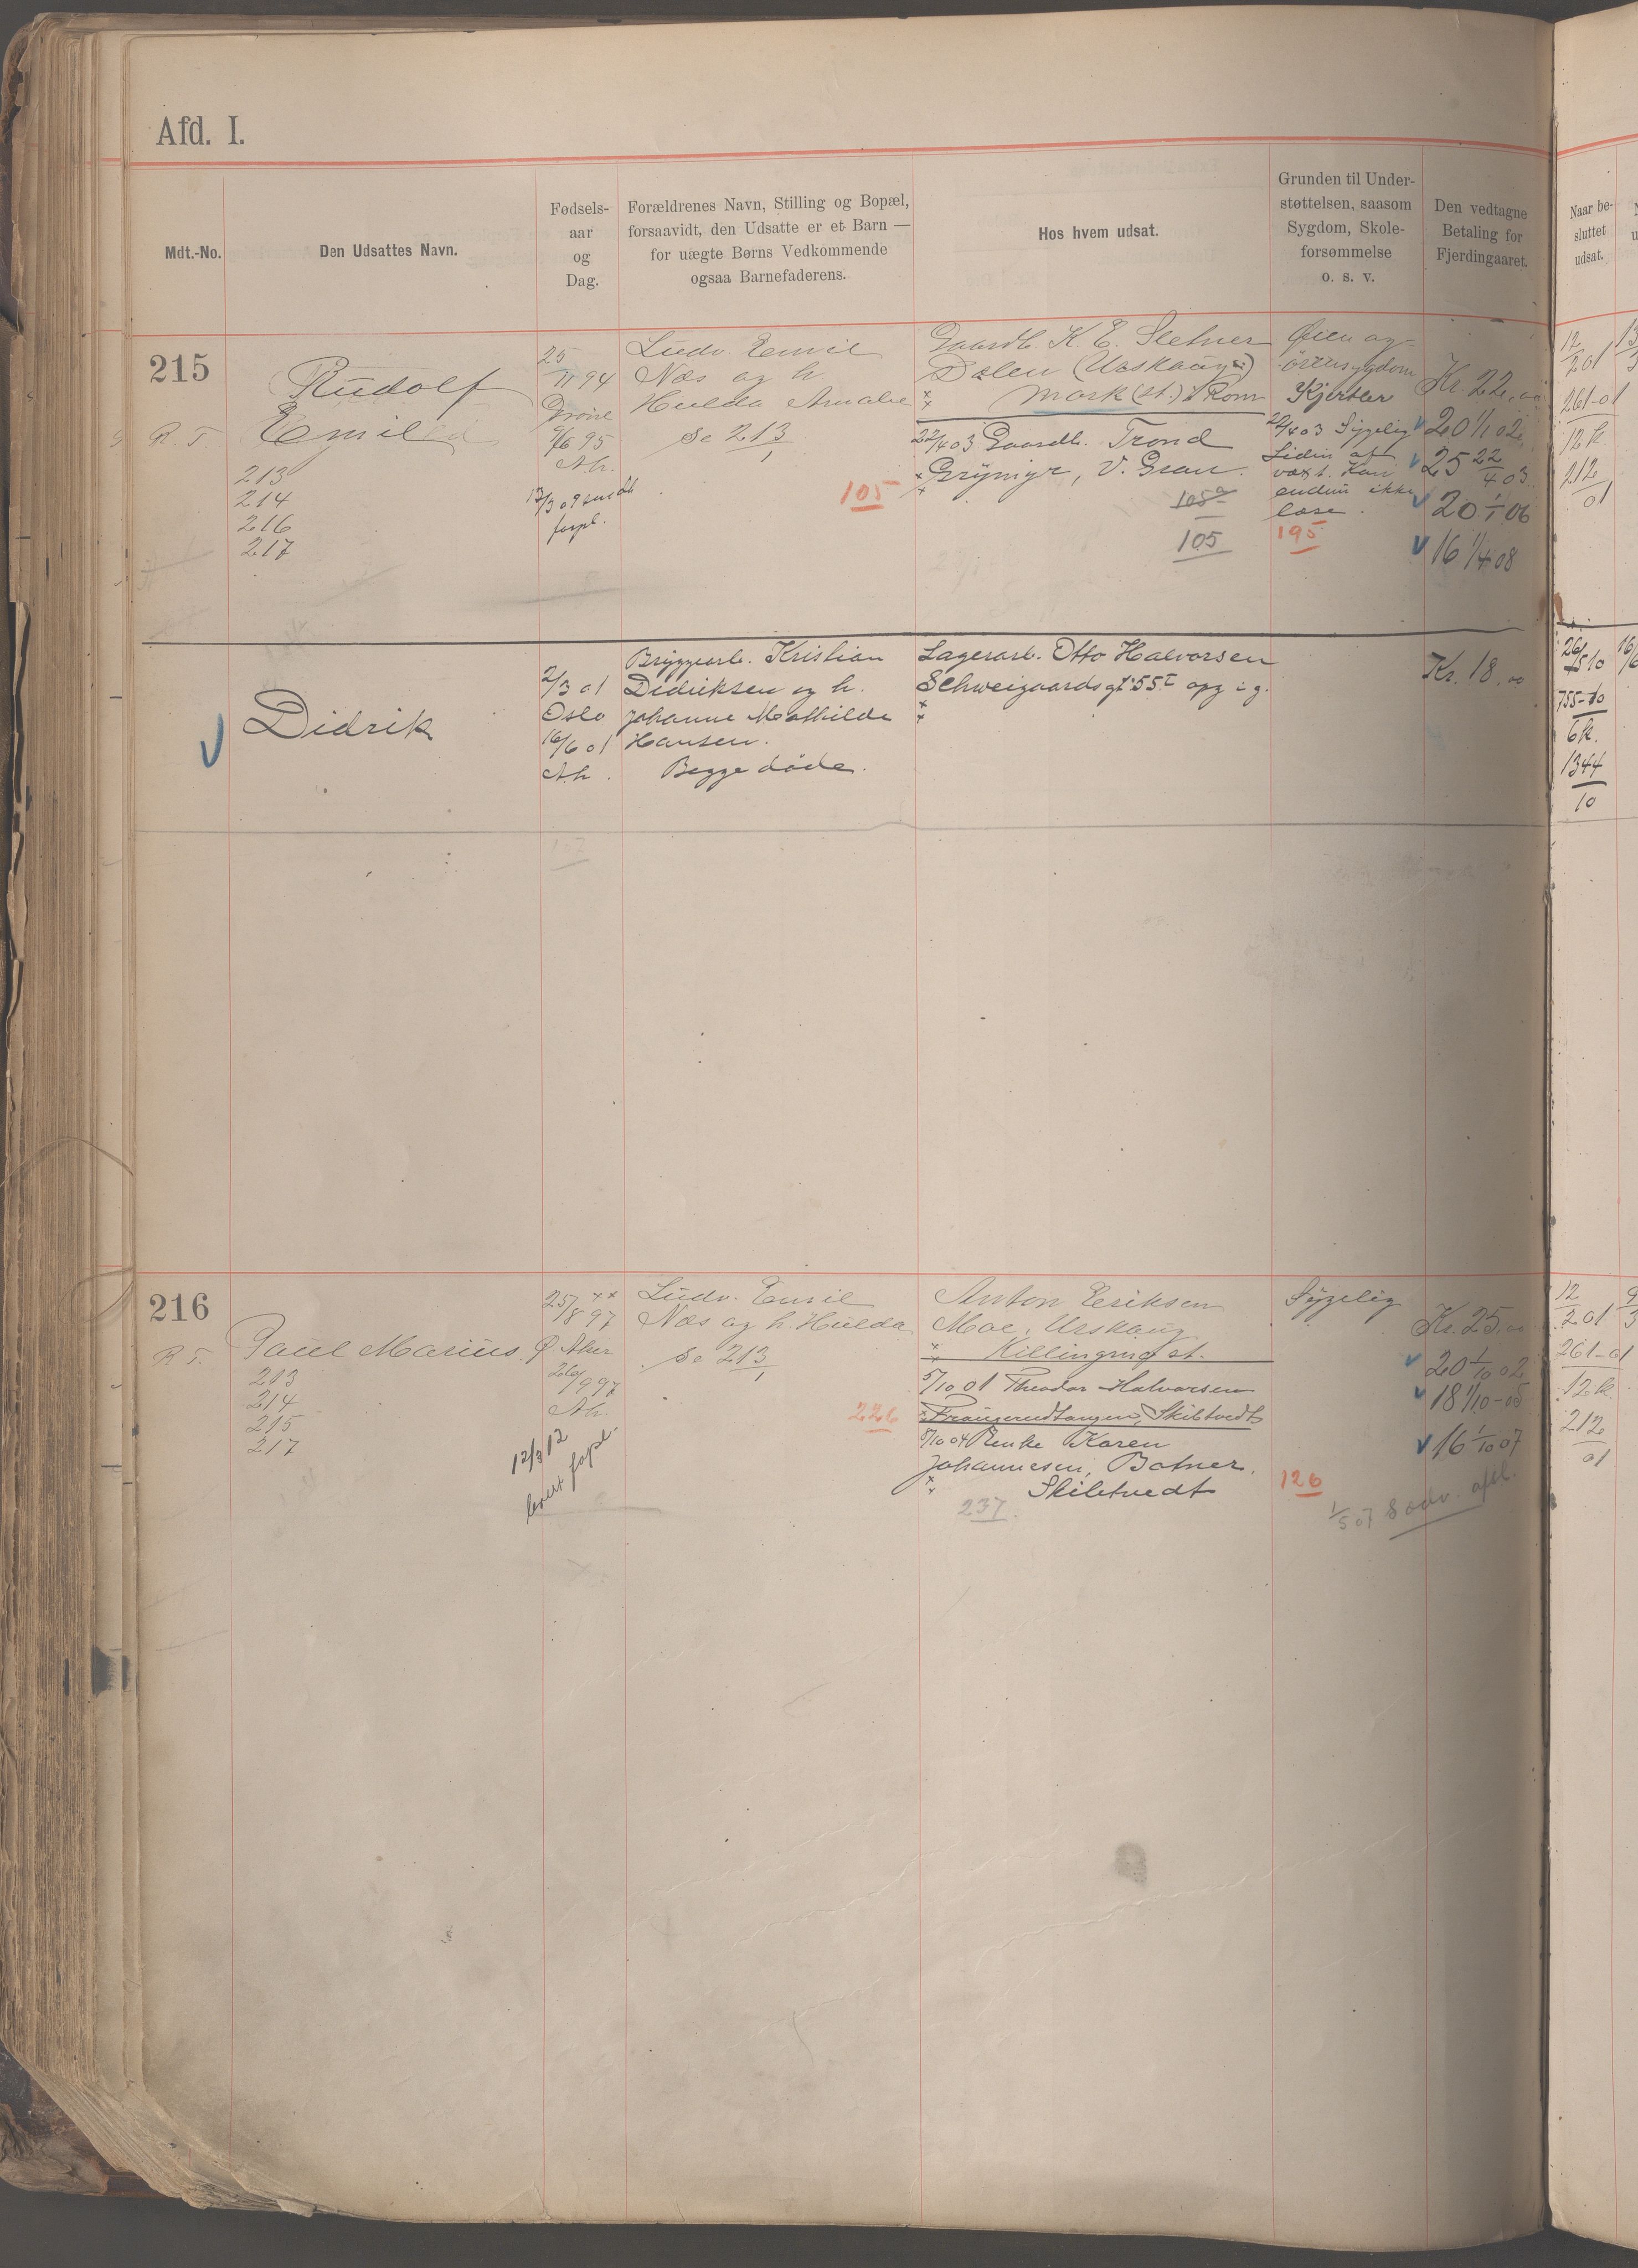 Afd. I.
Mdt.-No.
Den Udsattes Navn.
Fødsels-
aar
og
Dag.
Forældrenes Navn, Stilling og Bopæl,
forsaavidt, den Udsatte er et Barn —
for uægte Børns Vedkommende
ogsaa Barnefaderens.
Hos hvem udsat.
Grunden til Under-
støttelsen, saasom
Sygdom, Skole-
forsømmelse
o. s. v.
Den vedtagne
Betaling for
Fjerdingaaret.
Naar be-
sluttet
udsat.
215
R. T.
Rudolf
Emil
213
214
216
217
25
/11 94
9/6 95
Ak.
13/3 09
forpl.
Ludv. Emil
Næs og h.
Hulda Amalie
Se 213
105
Gaardb. K. E. Sletner
Dalen (Urskoug)
Mork (st.)
22/4 03 Gaardb. Trond
Grymyr, V. Gran.
105
105
Øien og
ørensygdom
Kjertler
22/4 03 Sygelig
Liden af
vækst. Kan
endnu ikke
læse.
195
Kr. 22,00
20 1/1 02
25 22/4 03
20 1/1 06
16 1/4 08
12/2 01
261-01
12 k
212
01
Didrik
2/3 01
Oslo
16/6 01
Ak.
Bryggearb. Kristian
Didriksen og h.
Johanne Mathilde
Hansen.
Begge døde.
Lagerarb. Otto Halvorsen
Schweigaards gt. 55 opg i g.
Kr. 18.00
26/5 10
755-10
6 k.
1344
10
216
R T.
Paul Marius.
213
214
215
217
25/8 97
Ø Aker
26/9 97
Ak.
12/3 12
Ludv. Emil
Næs og h. Hulda
Se 213
226
Anton Eriksen
Moe, Urskoug
Killingmo st.
5/10 01 Theodor Halvorsen
Skibtvedt
5/10 04 Enke Karen
Johannesen, Botner,
Skibtvedt
237.
Sygelig
126
Kr. 25,00
20 1/10 02
18 1/10-05
16 1/10 07
1/5 07
12/2 01
261-01
12 k
212
01